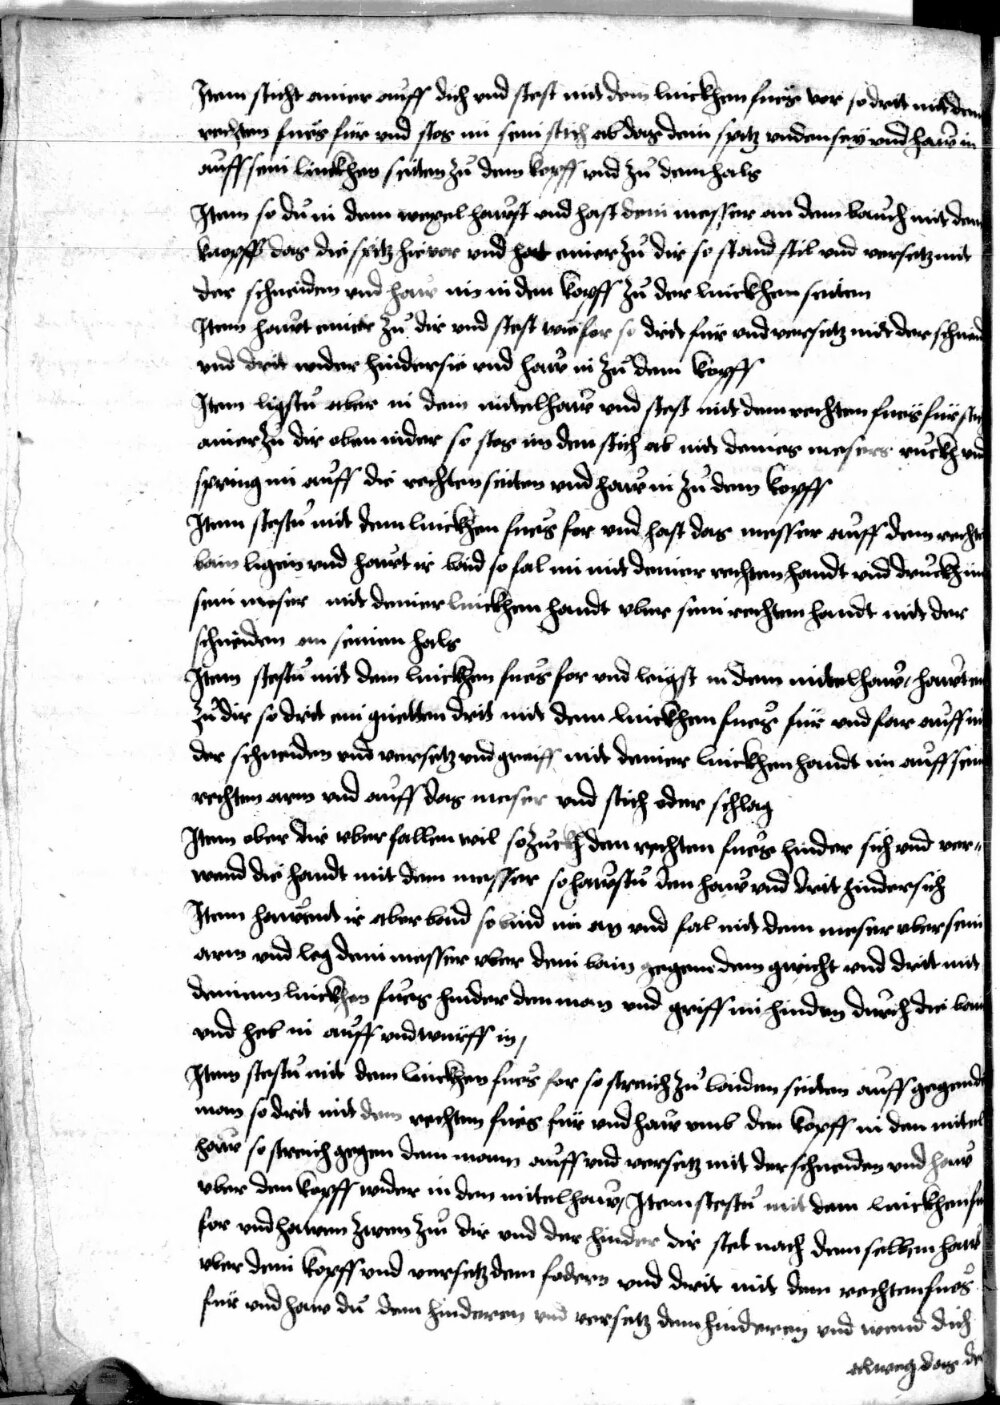 Item sticht ainer auff dich vnd stest mit dem linckhen fues vor so drit mit dem
rechten fues für vnd stos im sein stich ab das dein spitz vnden sey vnd haw in
auff sein linckhen seiten zu dem kopff vnd zu dem hals
Item so du in dem wexel hawst vnd hast dein messer an dem bauch mit dem
knopff das die spitz hie vor vnd hat ainer zu dir so stand stil vnd versetz mit
der schneiden vnd haw im in den kopff zu der linckhen seiten
Item hawt ainer zu dir vnd stest wie for so drit für vnd versetz mit der schneid
vnd drit wider hindersie vnd haw in zu dem kopff
Item ligstu aber in dem mitelhaw vnd stest mit dem rechten fues für
ainer zu dir oben nider so stos im den stich ab mit deines mesers ruckh vnd
spring im auff die rechten seiten vnd haw in zu dem kopff
Item stestu mit dem linckhen fues for vnd hast das messer auff dem rechten
bain ligein vnd hawt ir baid so fal im mit deiner rechten handt vnd druckh im
sein meser mit deiner linckhen handt vber sein rechten handt mit der
schneiden an seinen hals
Item stestu mit dem linckhen fues for vnd leigst in dem mitelhaw, hawt ein
zu dir so drit ein guetten drit mit dem linckhen fues für vnd far auff mit
der schneiden vnd versetz vnd greiff mit deiner linckhen handt im auff sein
rechten arm vnd auff das meser vnd stich oder schlag
Item ober dir vber fallen wil so zuckh den rechten fues hinder sich vnd ver-
wend die handt mit dem messer so hawstu den haw vnd drit hindersich
Item hawent ir aber baid so bind im an vnd fal mit dem meser vber sein
arm vnd leg dein messer vber dein bain gegem dem gwicht vnd drit mit
deinem linckhen fues hinder den man vnd griff im hinden durch die bain
vnd heb in auff vnd wurff in,
Item stestu mit dem linckhen fues for so streich zu baiden seiten auff gegen dem
man so drit mit dem rechten fues für vnd haw vmb den kopff in den mitel
haw so streich gegen dem mann auff vnd versetz mit der schneiden vnd haw
vber den kopff wider in den mittelhaw, Item stestu mit dem linckhen fu
for vnd hawen zwen zu dir vnd der hinder dir stet nach dem selben haw
vber dein kopff vnd versetz dem fodern vnd drit mit dem rechten fues
für vnd haw du dem hinderen vnd versetz dem hinderen vnd wend dich
alweg das der